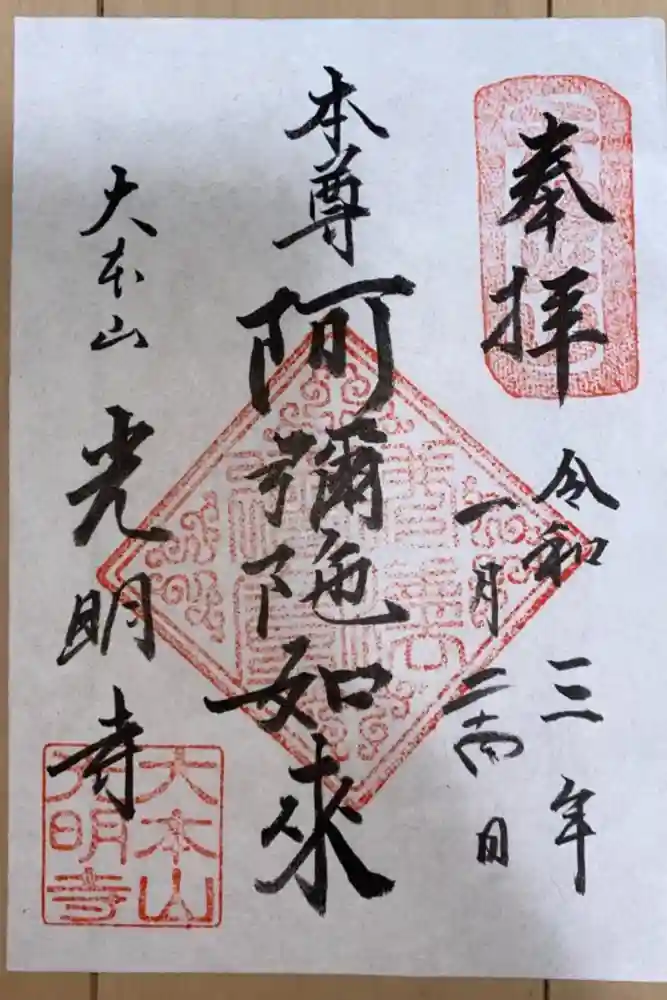 奉拝
令和三年
一月二十四日
本尊
阿彌陀如来
大本山
光明寺
大本山
光明寺